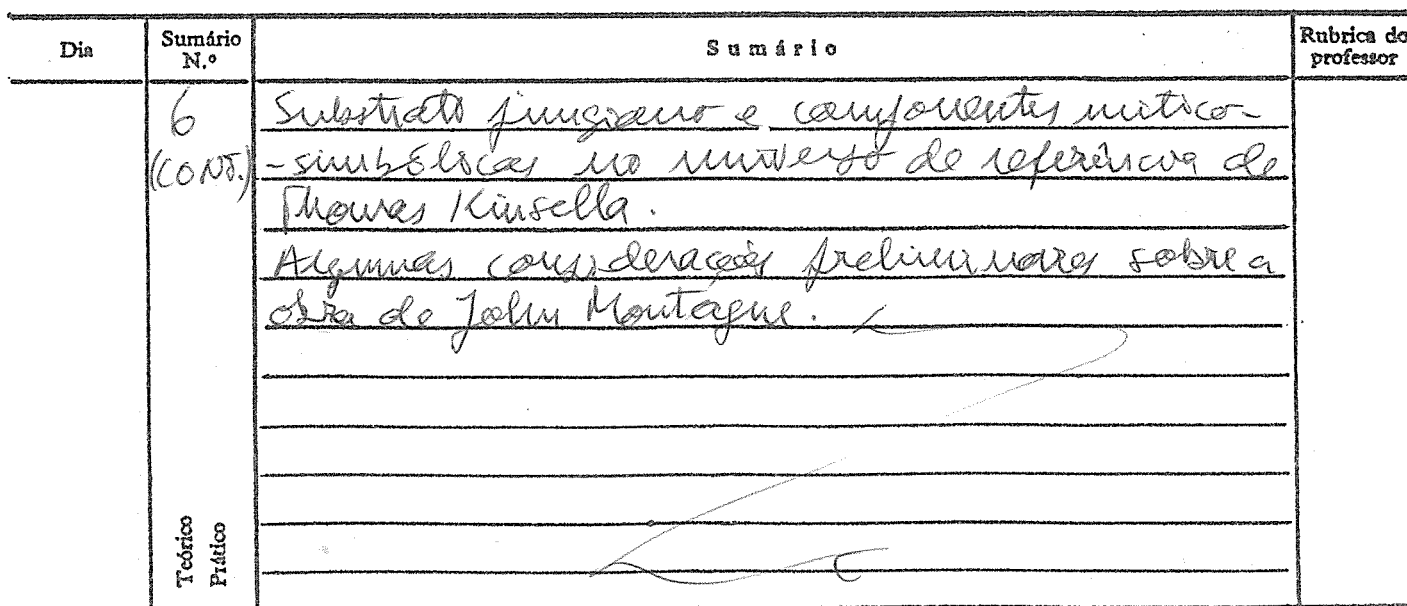 Dia
Sumário N.º
Sumário
Rubrica do professor
6 (CONT.)
Substrato jungiano e componentes mitico-
-simbólicas no universo de referência de
Thomas Kinsella.
Algumas considerações preliminares sobre a
obra de John Montague.
Teórico
Prático